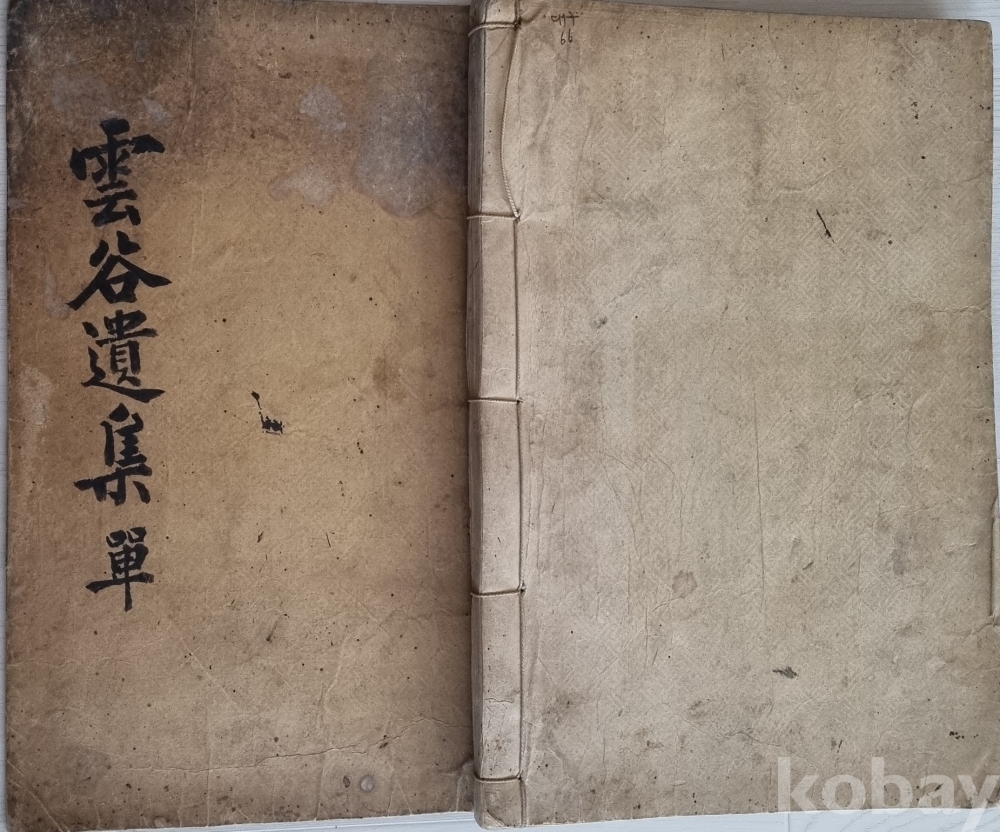 雲谷遺集 單
대구
66
kobay